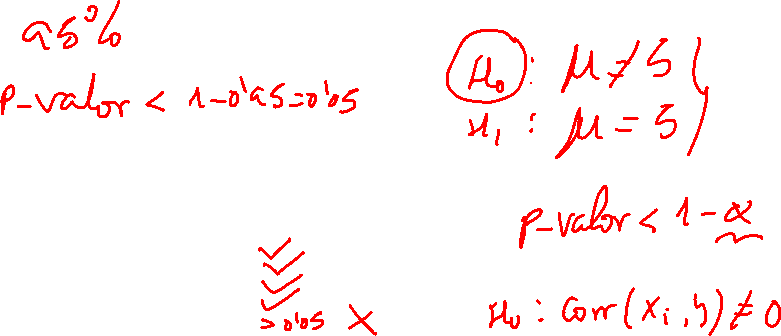 95%
P-valor < 1-0'95=0'05
H₀: μ ≠ 5
H₁: μ = 5
P-valor < 1-α
>0'05 X
H₀: Corr(Xi, y) ≠ 0